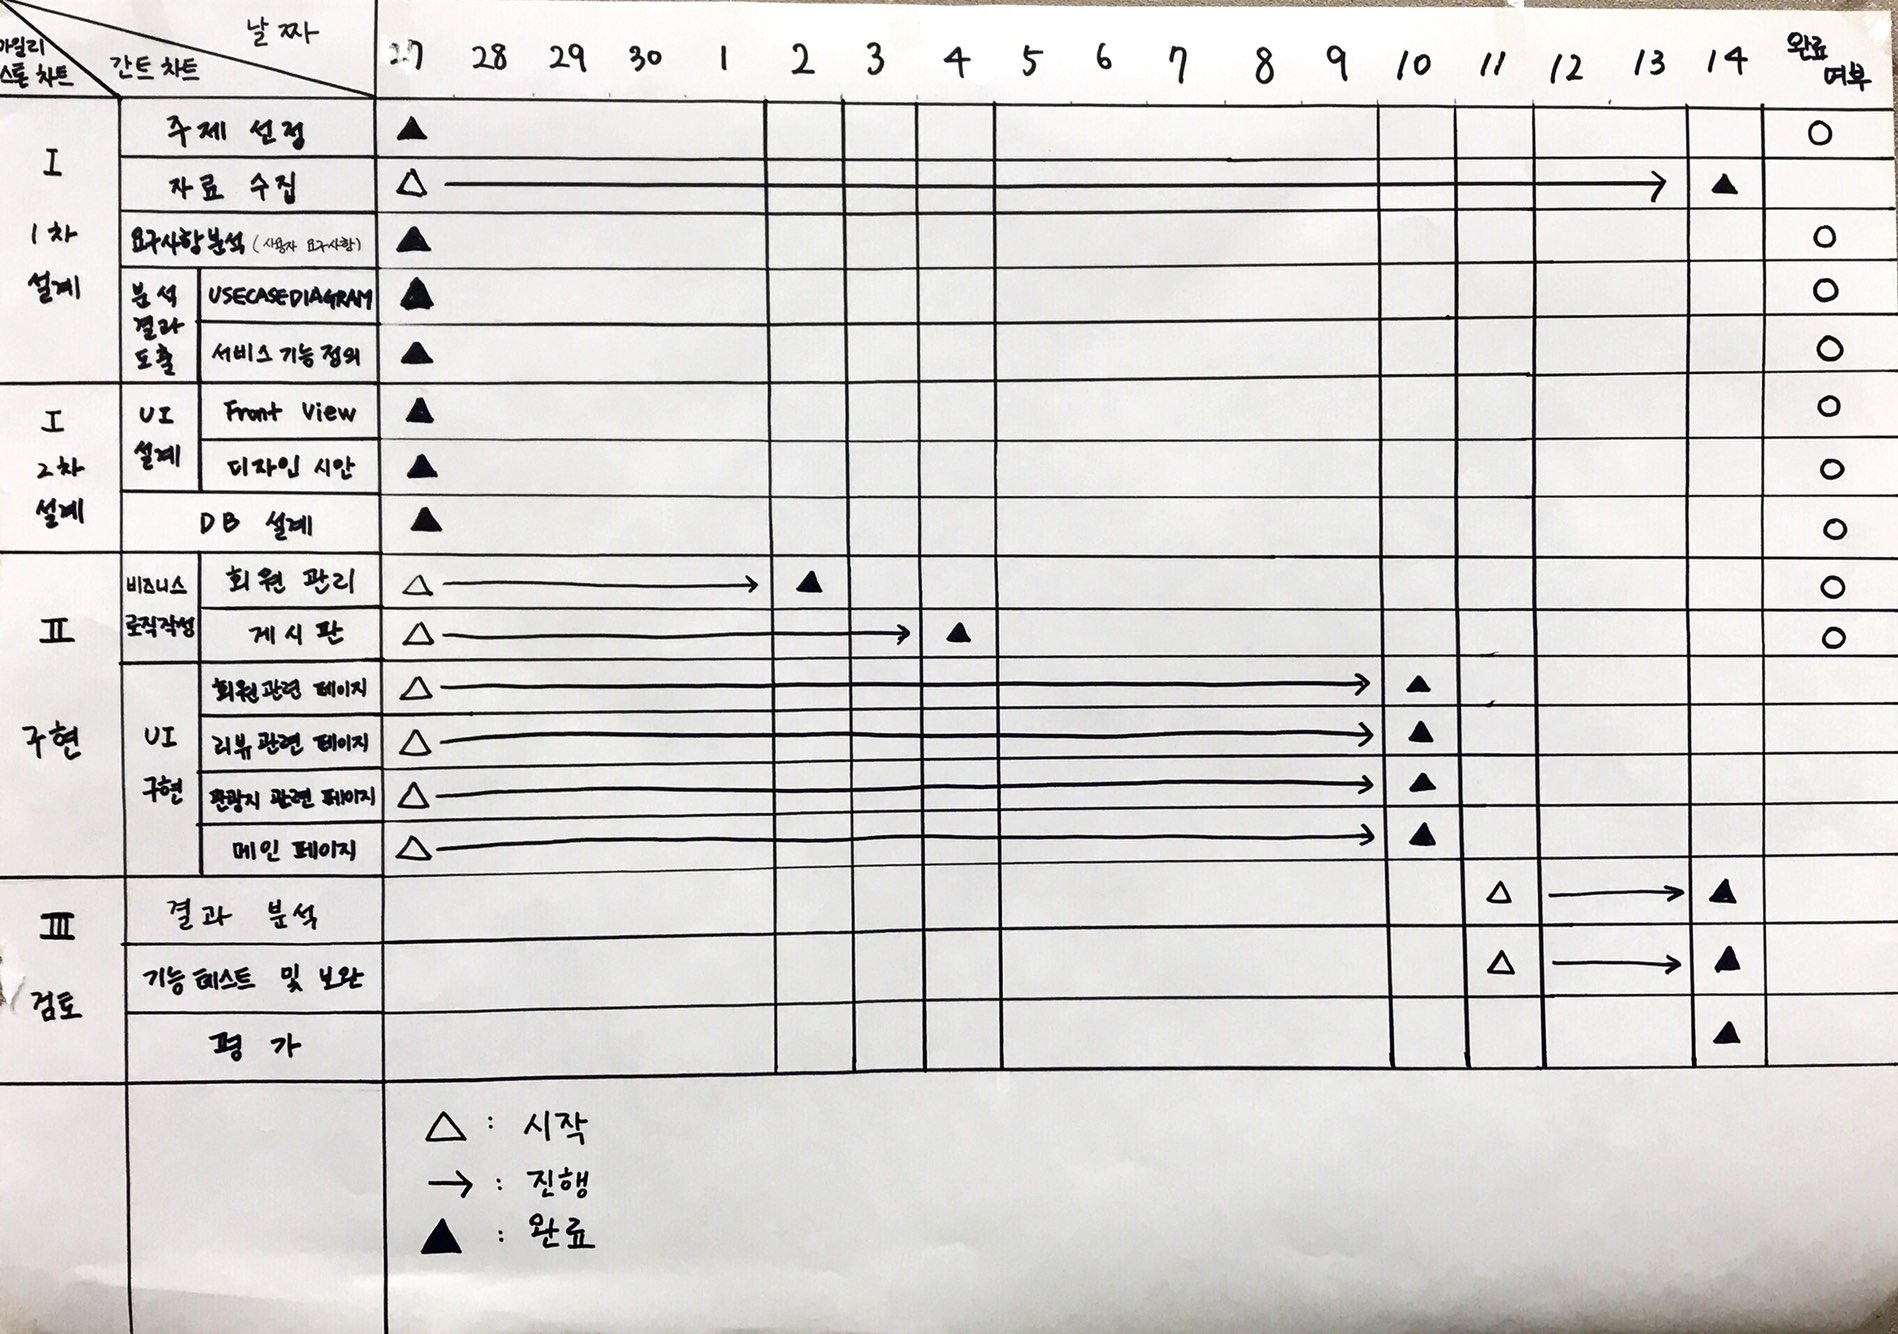 날짜
마일리
스톤 차트
간트 차트
27 28 29 30 1 2 3 4 5 6 7 8 9 10 11 12 13 14 완료
여부
I
1차
설계
주제 선정
자료 수집
요구사항분석 (사용자 요구사항)
분석
결과
도출
USECASEDIAGRAM
서비스 기능 정의
I
2차
설계
UI
설계
Front View
디자인 시안
DB 설계
II
구현
비즈니스
로직작성
회원 관리
게시판
UI
구현
회원관련 페이지
리뷰관련 페이지
관광지 관련 페이지
메인 페이지
III
검토
결과 분석
기능테스트 및 보완
평가
△ : 시작
→ : 진행
▲ : 완료